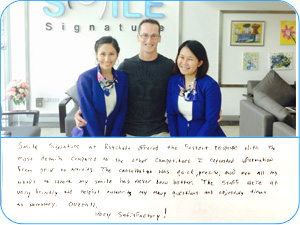 SMILE
Signature
Smile Signature at Ratchada offered the fastest response with the
most details compared to the other companies I requested information
from prior to arriving. The consultation was quick, precise, and met all my
needs to where my smile has never been better. The staff here are
very friendly and helpful answering my many questions and
as necessary. Overall,
Very Satisfactory!